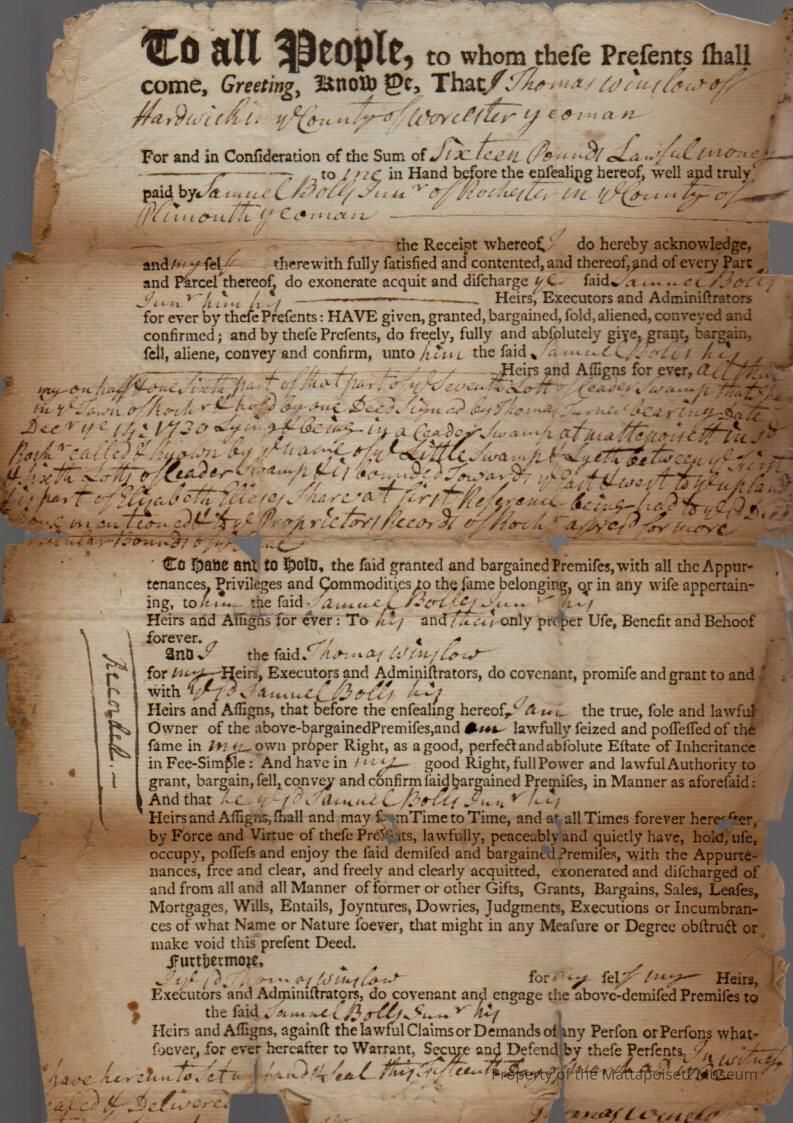 To all People, to whom theſe Preſents ſhall
come, Greeting, Know Ye, That I Thomas Winslow of
Hardwick in ye County of Worcester yeoman
For and in Conſideration of the Sum of Sixteen Pounds Lawful money
to me in Hand before the enſealing hereof, well and truly
paid by Samuel Bolls Junr of Rochester in ye County of
Plimouth yeoman
the Receipt whereof I do hereby acknowledge,
and my ſelf therewith fully ſatisfied and contented, and thereof, and of every Part
and Parcel thereof, do exonerate acquit and diſcharge ye ſaid Samuel Bolls
Junr him his Heirs, Executors and Adminiſtrators
for ever by theſe Preſents: HAVE given, granted, bargained, ſold, aliened, conveyed and
confirmed; and by theſe Preſents, do freely, fully and abſolutely give, grant, bargain,
ſell, aliene, convey and confirm, unto him the ſaid Samuel Bolls his
Heirs and Aſſigns for ever, all that
my on half & one Sixth part of that part of ye Seventh Lott of Ceader Swamp that
in ye Town of Rochr & hold by one Deed Signed by Thomas Turner bearing date
Decr ye 14: 1730 Lying & being in a Ceader Swamp at mattepoisett in sd
Rochr called & known by ye name of ye Little Swamp & Lyeth between ye first
& Sixth Lotts of Ceader Swamp & is bounded Towards ye East & west to ye upland
his part of Elizabeth Share at first Reference being had to ye sd Deed
mentioned & to ye Proprietors Records of Rochr aforesd for more
Bounds
To Have and to Hold, the ſaid granted and bargained Premiſes, with all the Appur-
tenances, Privileges and Commodities to the ſame belonging, or in any wiſe appertain-
ing, to him the ſaid Samuel Bolls Junr his
Heirs and Aſſigns for ever: To his and their only proper Uſe, Benefit and Behoof
forever.
And I the ſaid Thomas Winslow
for my Heirs, Executors and Adminiſtrators, do covenant, promiſe and grant to and
with ye sd Samuel Bolls his
Heirs and Aſſigns, that before the enſealing hereof, I am the true, ſole and lawful
Owner of the above-bargained Premiſes, and am lawfully ſeized and poſſeſſed of the
ſame in my own proper Right, as a good, perfect and abſolute Eſtate of Inheritance
in Fee-Simple: And have in my good Right, full Power and lawful Authority to
grant, bargain, ſell, convey and confirm ſaid bargained Premiſes, in Manner as aforeſaid:
And that he ye sd Samuel Bolls Junr his
Heirs and Aſſigns, ſhall and may from Time to Time, and at all Times forever hereafter,
by Force and Virtue of theſe Preſents, lawfully, peaceably and quietly have, hold, uſe,
occupy, poſſeſs and enjoy the ſaid demiſed and bargained Premiſes, with the Appurte-
nances, free and clear, and freely and clearly acquitted, exonerated and diſcharged of
and from all and all Manner of former or other Gifts, Grants, Bargains, Sales, Leaſes,
Mortgages, Wills, Entails, Joyntures, Dowries, Judgments, Executions or Incumbran-
ces of what Name or Nature ſoever, that might in any Meaſure or Degree obſtruct or
make void this preſent Deed.
Furthermore,
I ye sd Thomas Winslow for my ſelf my Heirs,
Executors and Adminiſtrators, do covenant and engage the above-demiſed Premiſes to
the ſaid Samuel Bolls Junr his
Heirs and Aſſigns, againſt the lawful Claims or Demands of any Person or Perſons what-
ſoever, for ever hereafter to Warrant, Secure and Defend by theſe Perſents. In witnes
have hereunto Set my hand & Seal this fifteenth Day of
& Delivered
Thomas Winslow
Recorded.
Property of the Mattapoisett Museum